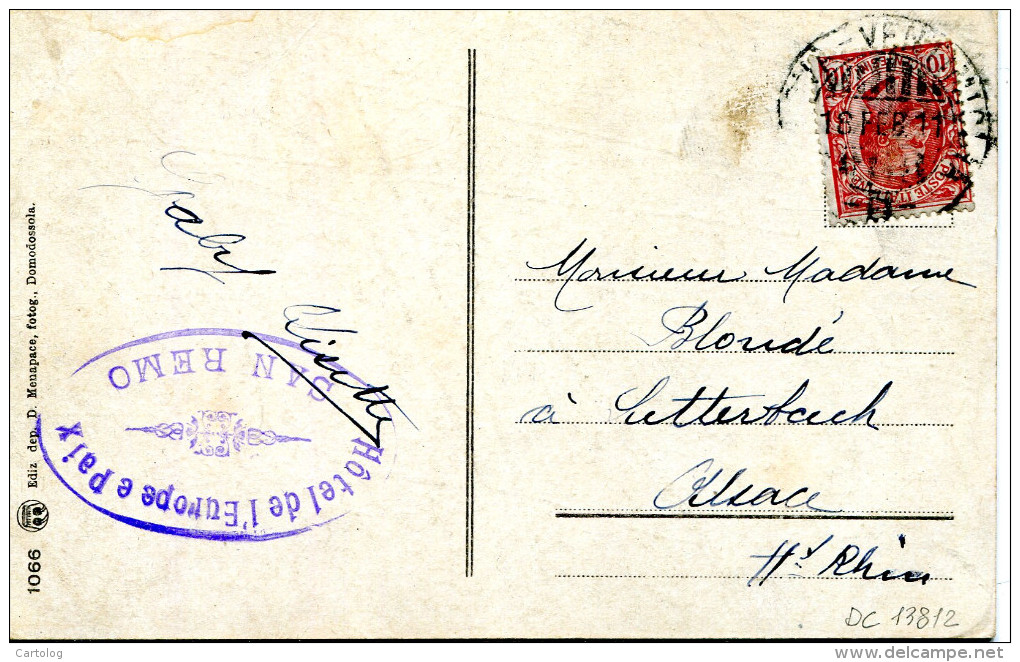 18 FEB 11
10
POSTE ITALIANE
Monsieur Madame
Blondé
à Lutterbach
Alsace
Ht Rhin
Gaby
SAN REMO
Hôtel de l'Europe e paix
1066 Ediz dep. D. Menapace, fotog., Domodossola.
DC 13812
© Cartolog
delcampe.net